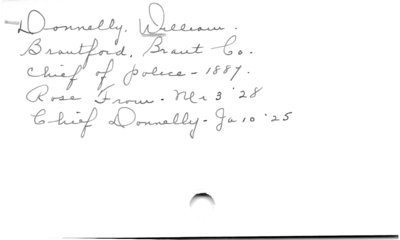 Donnelly, William.
Brantford, Brant Co.
Chief of police - 1887.
Rose From - Mr 3 '28
Chief Donnelly - Ja 10 '25